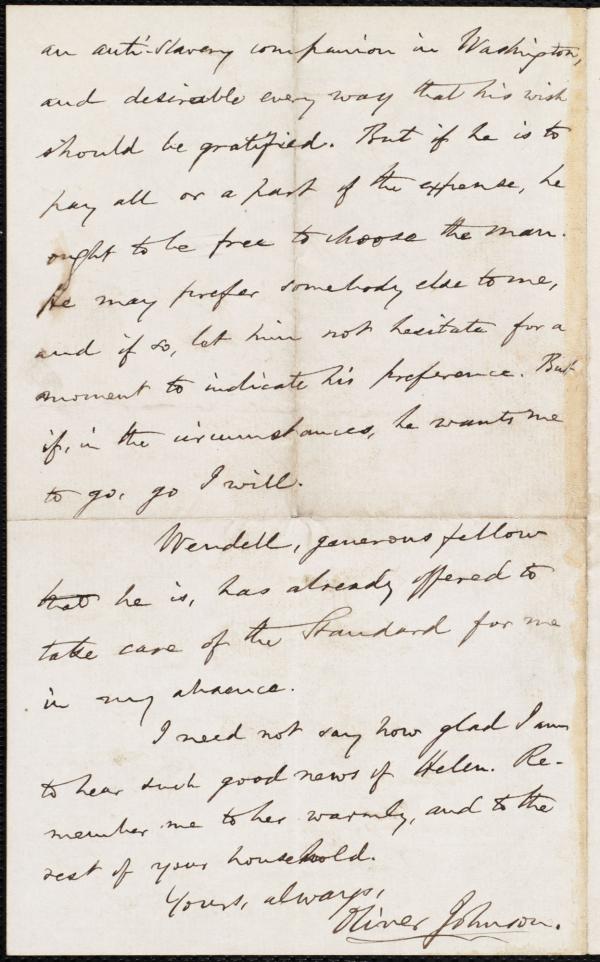 an anti-slavery companion in Washington,
and desirable every way that his wish
should be gratified. But if he is to
pay all or a part of the expense, he
ought to be free to choose the man.
He may prefer somebody else to me,
and if so, let him not hesitate for a
moment to indicate his preference. But
if, in the circumstances, he wants me
to go, go I will.
Wendell, generous fellow
that he is, has already offered to
take care of the Standard for me
in my absence.
I need not say how glad I am
to hear such good news of Helen. Re-
member me to her warmly, and to the
rest of your household.
Yours, always,
Oliver Johnson.